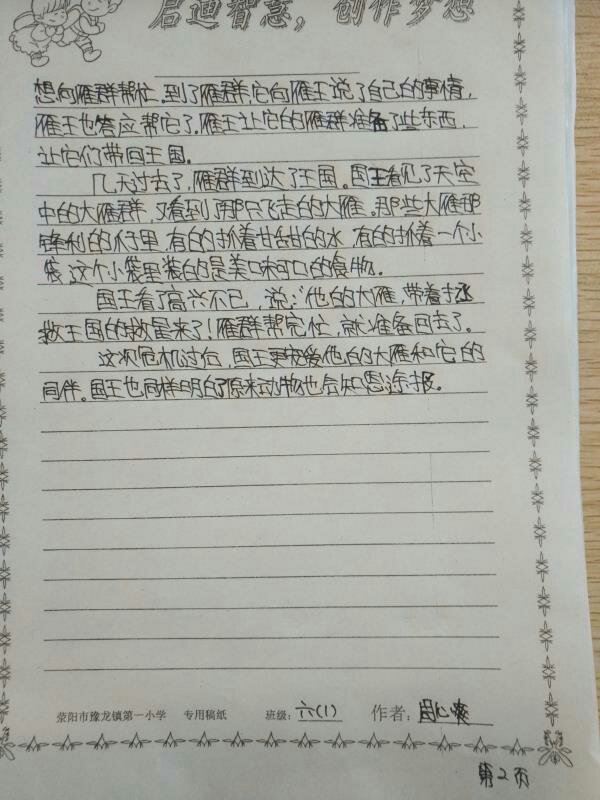 启迪智慧，创作梦想
想向雁群帮忙。到了雁群,它向雁王说了自己的事情,
雁王也答应帮它了。雁王让它的雁群准备了些东西,
让它们带回王国。
几天过去了,雁群到达了王国。国王看见了天空
中的大雁群,又看到了那只飞走的大雁。那些大雁那
锋利的爪子里,有的抓着甘甜甘的水,有的抓着一个小
袋,这个小袋里装的是美味可口的食物。
国王看了高兴不已,说:"他的大雁,带着拯
救王国的救星来了!雁群帮完忙,就准备回去了。
这次危机过后,国王更宠爱他的大雁和它的
同伴。国王也同样明白了原来动物也会知恩途报。
荥阳市豫龙镇第一小学 专用稿纸 班级: 六(1) 作者: 周心
第2页